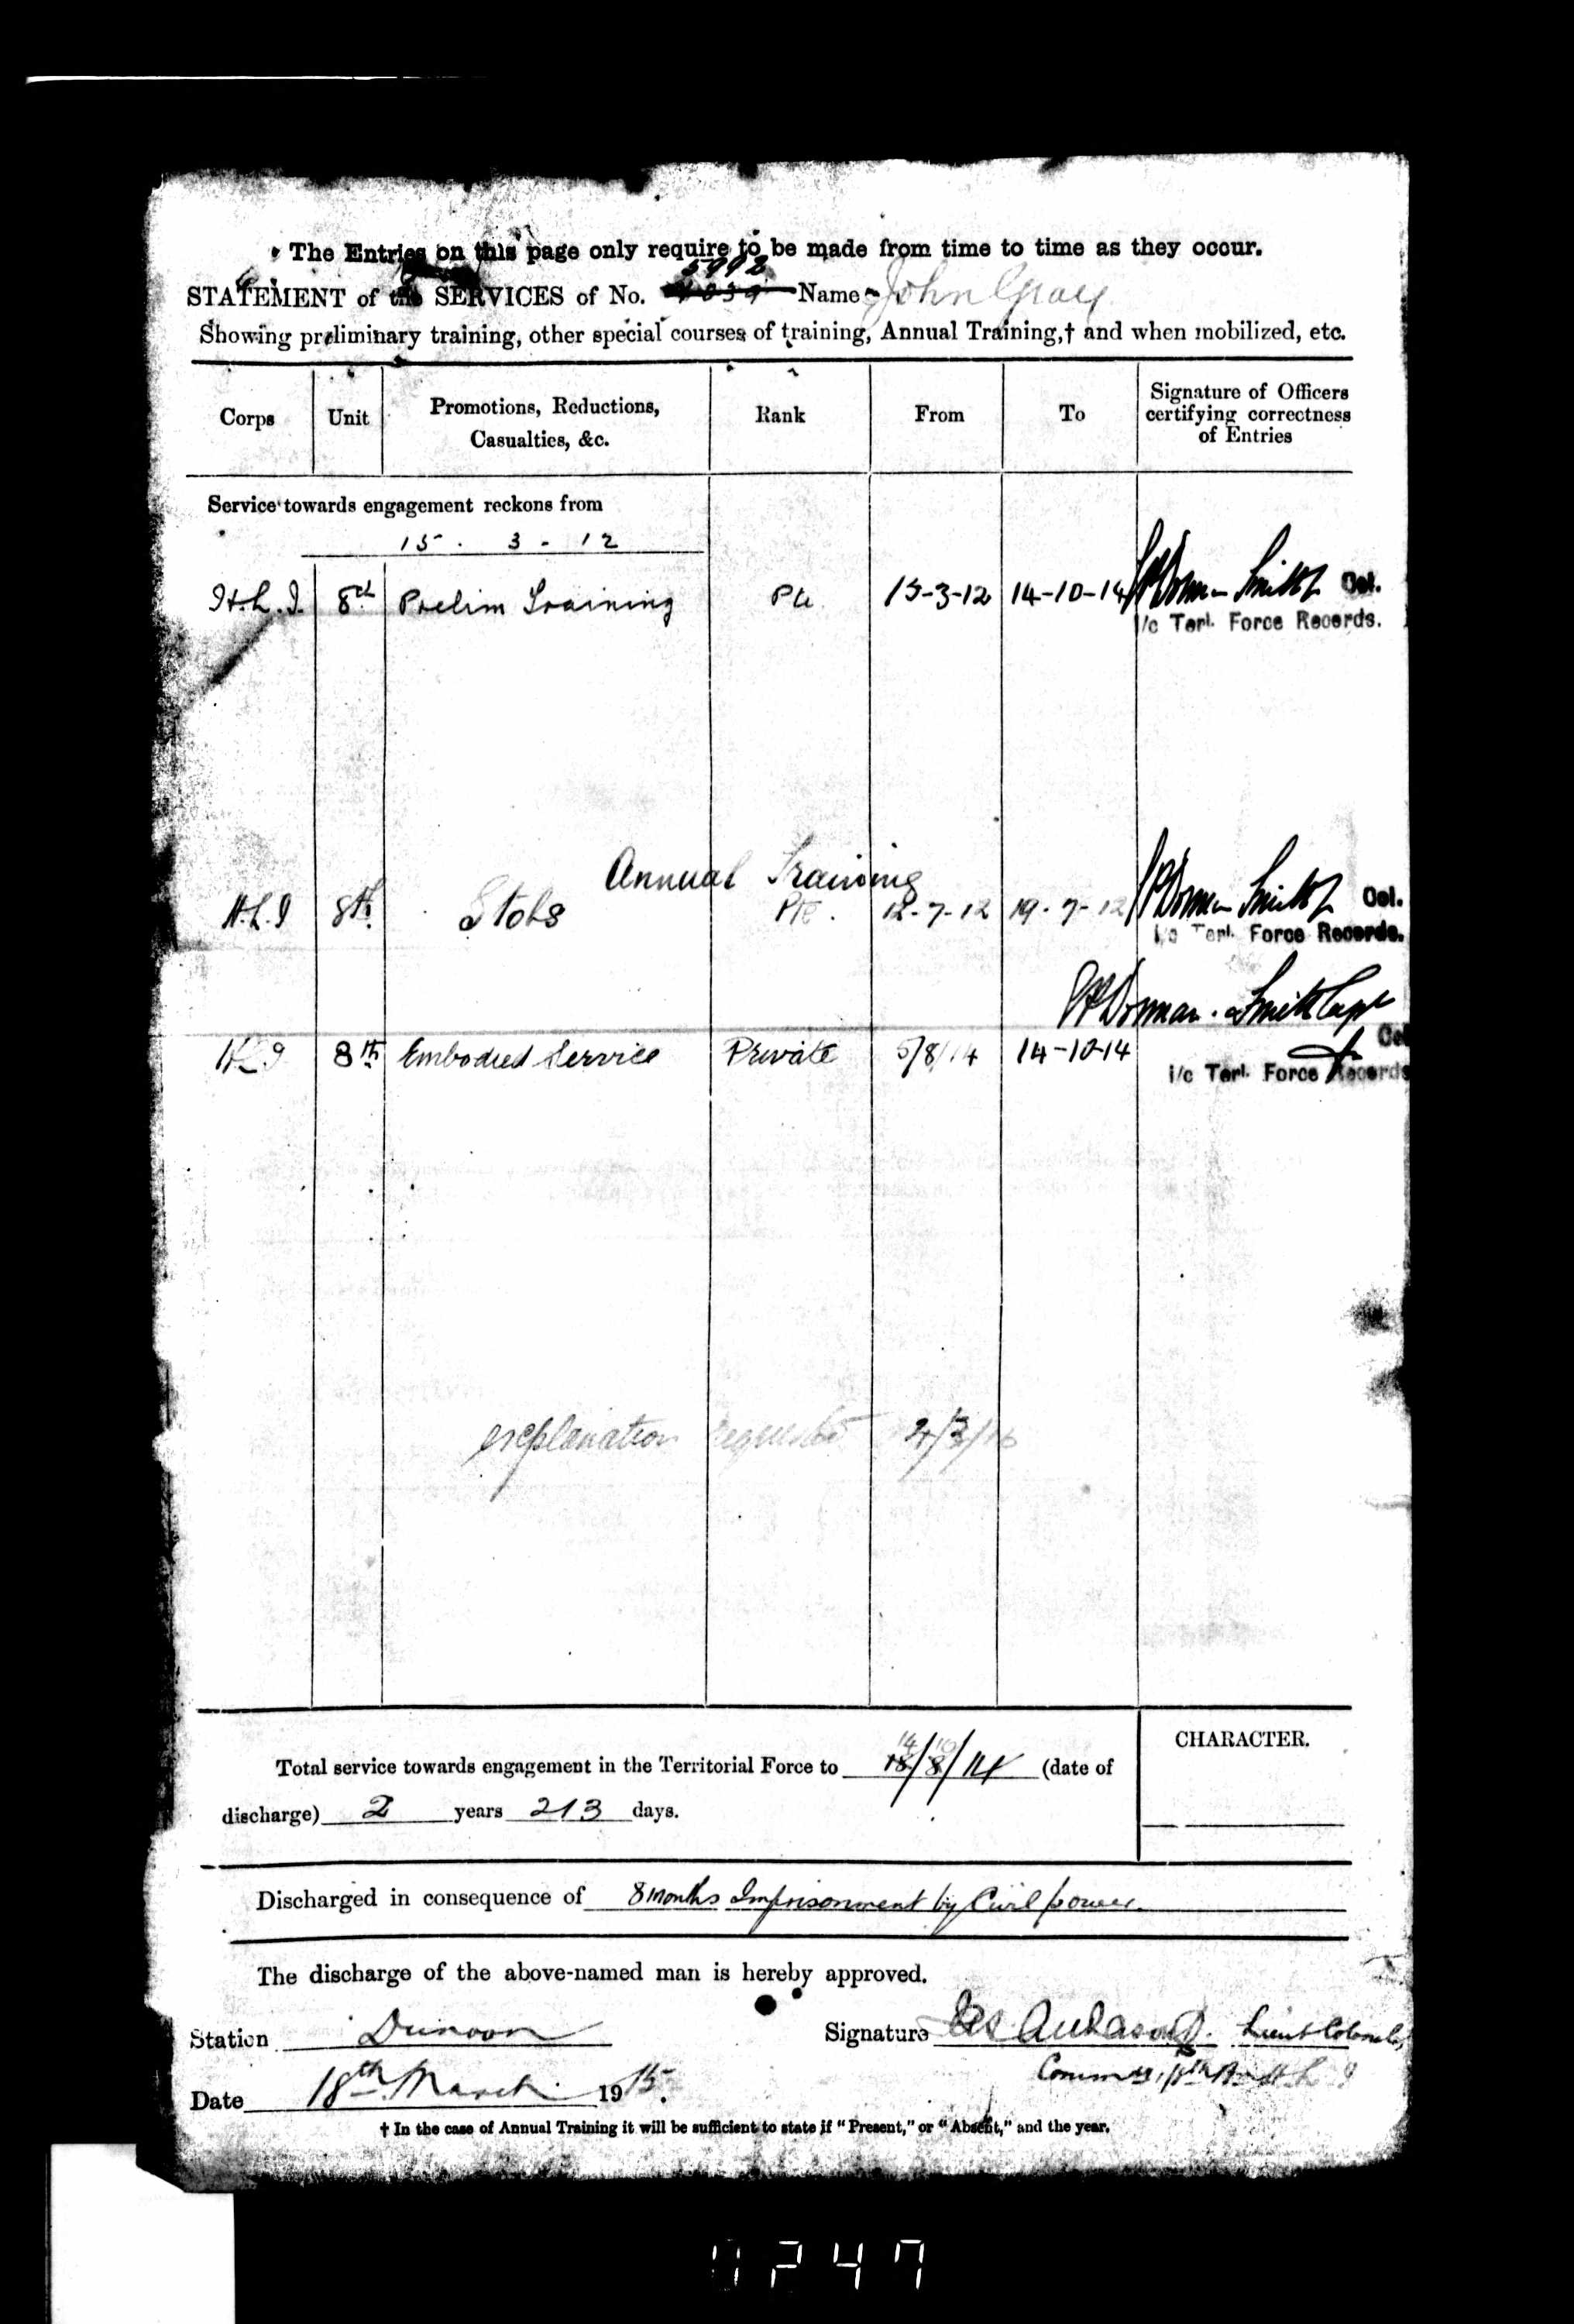 The Entries on this page only require to be made from time to time as they occur.
STATEMENT of the SERVICES of No. Name John Gray
Showing preliminary training, other special courses of training, Annual Training,† and when mobilized, etc.
Corps Unit Promotions, Reductions, Casualties, &c. Rank From To Signature of Officers certifying correctness of Entries
Service towards engagement reckons from
15 . 3 - 12
H.L.I. 8th Prelim Training Pte 15-3-12 14-10-14 Dorman-Smith Col.
i/c Terl. Force Records.
Annual Training
H.L.I 8th Stobs Pte. 12-7-12 19-7-12 Dorman-Smith Col.
i/c Terl. Force Records.
Dorman-Smith Capt
H.L.I 8th Embodied Service Private 5/8/14 14-10-14 Col
i/c Terl. Force Records
explanation requested
14 10
Total service towards engagement in the Territorial Force to 18/8/14 (date of
discharge) 2 years 213 days.
CHARACTER.
Discharged in consequence of 8 months Imprisonment by Civil power.
The discharge of the above-named man is hereby approved.
Station Dunoon Signature Lieut Colonel,
Date 18th March 1915. 8th Bn H L I
† In the case of Annual Training it will be sufficient to state if "Present," or "Absent," and the year.
0247